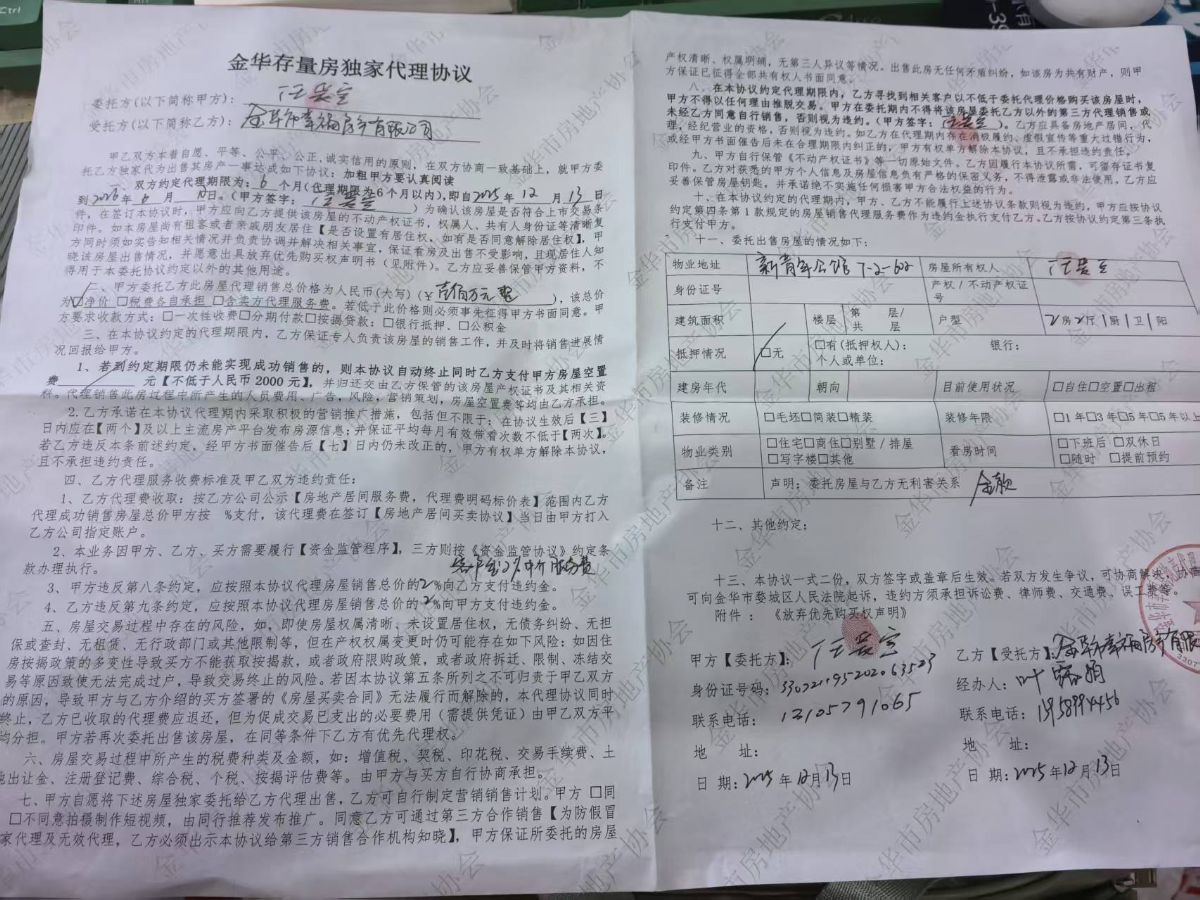 金华存量房独家代理协议
委托方(以下简称甲方)：
受托方(以下简称乙方)： 金华市幸福房产有限公司
甲乙双方本着自愿、平等、公平、公正,诚实信用的原则，在双方协商一致基础上，就甲方委
托乙方独家代为出售其房产一事达成如下协议：加粗甲方要认真阅读
一、双方约定代理期限为：6 个月(代理期限为6个月以内),即自2025年 12月 13日
到2026年 6月 日。(甲方签字： )为确认该房屋是否符合上市交易条
件，在签订本协议时，甲方应向乙方提供该房屋的不动产权证书，权属人、共有人身份证等清晰复
印件。如本房屋尚有租客或者亲戚朋友居住【是否设置有居住权、如有是否同意解除居住权】，甲
方同时须如实告知相关情况并负责协调并解决相关事宜，保证看房及出售不受影响，且现居住人知
晓该房屋出售情况，并愿意出具放弃优先购买权声明书（见附件）。乙方应妥善保管甲方资料，不
得用于本委托协议约定以外的其他用途。
二、甲方委托乙方此房屋代理销售总价格为人民币(大写)(￥壹佰万元整 )，该总价
为☑净价 □税费各自承担 □含卖方代理服务费。若低于此价格则必须事先征得甲方书面同意。甲
方要求收款方式：□一次性收费□分期付款□按揭贷款：□银行抵押、□公积金
三、在本协议约定的代理期限内，乙方保证专人负责该房屋的销售工作，并及时将销售进展情
况回报给甲方。
1、若到约定期限仍未能实现成功销售的，则本协议自动终止同时乙方支付甲方房屋空置
费 元【不低于人民币2000元】，并归还交由乙方保管的该房屋产权证书及其相关资
料。代理销售此房过程中所产生的人员费用、广告，风险，营销策划，房屋空置费等均由乙方承担。
2.乙方承诺在本协议代理期内采取积极的营销推广措施，包括但不限于：在协议生效后【三】
日内应在【两个】及以上主流房产平台发布房源信息；并保证平均每月有效带看次数不低于【两次】。
若乙方违反本条前述约定，经甲方书面催告后【七】日内仍未改正的，甲方有权单方解除本协议，
且不承担违约责任。
四、乙方代理服务收费标准及甲乙双方违约责任：
1、乙方代理费收取：按乙方公司公示【房地产居间服务费，代理费明码标价表】范围内乙方
代理成功销售房屋总价甲方按 %支付，该代理费在签订【房地产居间买卖协议】当日由甲方打入
乙方公司指定账户。
2、本业务因甲方、乙方、买方需要履行【资金监管程序】，三方则按《资金监管协议》约定条
款办理执行。
3、甲方违反第八条约定，应按照本协议代理房屋销售总价的2%向乙方支付违约金。
4、乙方违反第九条约定，应按照本协议代理房屋销售总价的2%向甲方支付违约金。
五、房屋交易过程中存在的风险，如，即使房屋权属清晰、未设置居住权，无债务纠纷、无担
保或查封、无租赁、无行政部门或其他限制等，但在产权权属变更时仍可能存在如下风险：如因住
房按揭政策的多变性导致买方不能获取按揭款，或者政府限购政策，或者政府拆迁、限制、冻结交
易等原因致使无法完成过户，导致交易终止的风险。若因本协议第五条所列之不可归责于甲乙双方
的原因，导致甲方与乙方介绍的买方签署的《房屋买卖合同》无法履行而解除的，本代理协议同时
终止，乙方已收取的代理费应退还，但为促成交易已支出的必要费用（需提供凭证）由甲乙双方平
均分担。甲方若再次委托出售该房屋，在同等条件下乙方有优先代理权。
六、房屋交易过程中所产生的税费种类及金额，如：增值税、契税、印花税、交易手续费、土
地出让金、注册登记费、综合税、个税、按揭评估费等。由甲方与买方自行协商承担。
七、甲方自愿将下述房屋独家委托给乙方代理出售，乙方可自行制定营销销售计划。甲方 □同
□不同意拍摄制作短视频，由同行推荐发布推广。同意乙方可通过第三方合作销售【为防假冒
家代理及无效代理，乙方必须出示本协议给第三方销售合作机构知晓】，甲方保证所委托的房屋
产权清晰、权属明确，无第三人异议等情况，出售此房无任何矛盾纠纷，如该房为共有财产，则甲
方保证已征得全部共有权人书面同意。
八、在本协议约定代理期限内，乙方寻找到相关客户以不低于委托代理价格购买该房屋时，
甲方不得以任何理由推脱交易。甲方在委托期内不得将该房屋委托乙方以外的第三方代理销售或
未经乙方同意自行销售，否则视为违约。(甲方签字： )。乙方应具备房地产居间，代
理，经纪营业的资格，否则视为违约。如乙方在代理期内存在消极履约、虚假宣传等重大过错行为，
或经甲方书面催告后未在合理期限内纠正的，甲方有权单方解除本协议，且不承担违约责任。
九、甲方自行保管《不动产权证书》等一切原始文件。乙方因履行本协议所需，可留存证书复
印件。乙方对获悉的甲方个人信息及房屋信息负有严格的保密义务，不得泄露或非法使用。乙方应
妥善保管房屋钥匙，并承诺绝不实施任何损害甲方合法权益的行为。
十、在本协议约定的代理期内，甲方、乙方不能履行上述协议条款则视为违约，甲方应按协议
约定第四条第1款规定的房屋销售代理服务费作为违约金执行支付乙方。乙方按协议约定第三条执
行支付甲方。
十一、委托出售房屋的情况如下：
物业地址 新青年公馆 7-2-602 房屋所有权人
身份证号 产权/不动产权证号
建筑面积 楼层 第 层/共 层 户型 2房2厅1厨1卫1阳
抵押情况 ☑无 □有(抵押权人)： 银行：
个人或单位：
建房年代 朝向 目前使用状况 □自住□空置□出租
装修情况 □毛坯□简装□精装 装修年限 □1年□3年□5年□5年以上
物业类别 □住宅□商住□别墅/排屋 看房时间 □下班后 □双休日
□写字楼□其他 □随时 □提前预约
备注 声明：委托房屋与乙方无利害关系 全款
十二、其他约定：
十三、本协议一式二份，双方签字或盖章后生效。若双方发生争议，可协商解决，协
可向金华市婺城区人民法院起诉，违约方须承担诉讼费、律师费、交通费、误工费等。
附件：《放弃优先购买权声明》
甲方【委托方】：
乙方【受托方】：金华市幸福房产有限
身份证号码：
经办人：叶
联系电话：13105791065
联系电话：
地 址：
地 址：
日 期：2025年12月13日
日 期：2025年12月13日